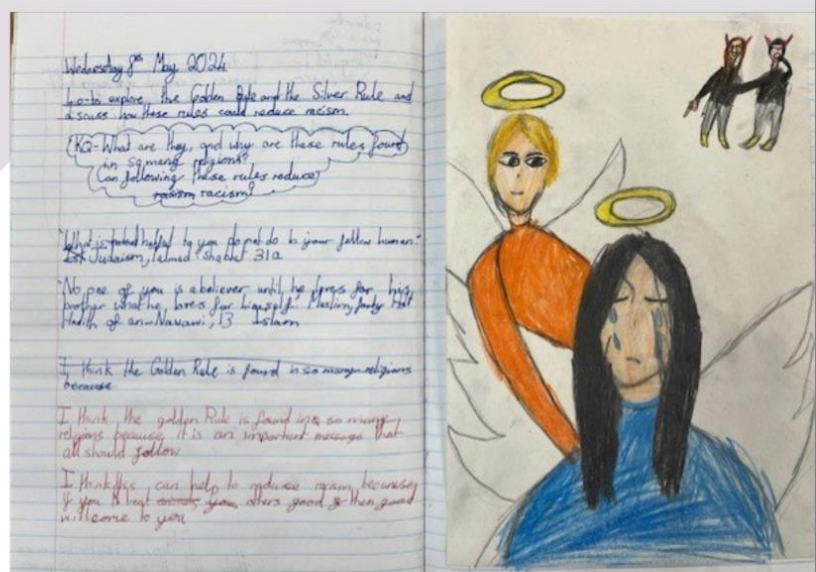 Wednesday 8th May 2024
L.O-to explore the Golden Rule and the Silver Rule and
discuss how these rules could reduce racism.
KQ-What are they, and why are these rules found
in so many religions?
Can following these rules reduce
racism racism?
"What is hateful to you do not do to your fellow human."
Judaism, Talmud Shabbat 31a
"No one of you is a believer until he loves for his
brother what he loves for himself." Muslim, forty
Hadith of an-Nawawi, 13 Islam
I think the Golden Rule is found in so many religions
because
I think the golden Rule is found in so many
religions because it is an important message that
all should follow
I think this can help to reduce racism because
if you treat others good then good
will come to you